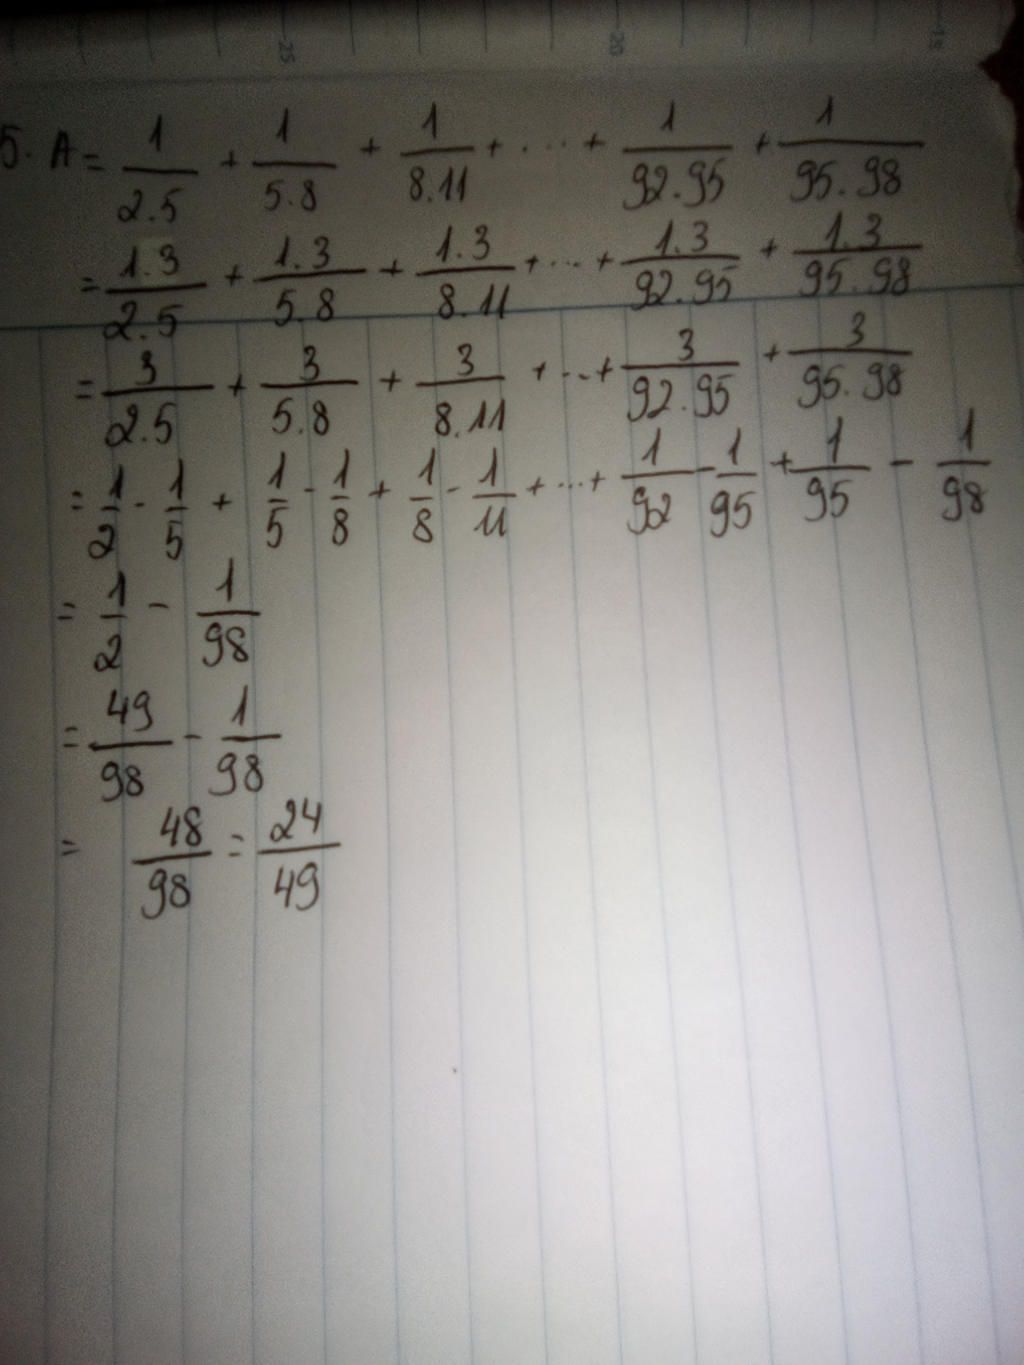 25 20 15
5. A = 1/2.5 + 1/5.8 + 1/8.11 + ... + 1/92.95 + 1/95.98
= 1.3/2.5 + 1.3/5.8 + 1.3/8.11 + ... + 1.3/92.95 + 1.3/95.98
= 3/2.5 + 3/5.8 + 3/8.11 + ... + 3/92.95 + 3/95.98
= 1/2 - 1/5 + 1/5 - 1/8 + 1/8 - 1/11 + ... + 1/92 - 1/95 + 1/95 - 1/98
= 1/2 - 1/98
= 49/98 - 1/98
= 48/98 = 24/49